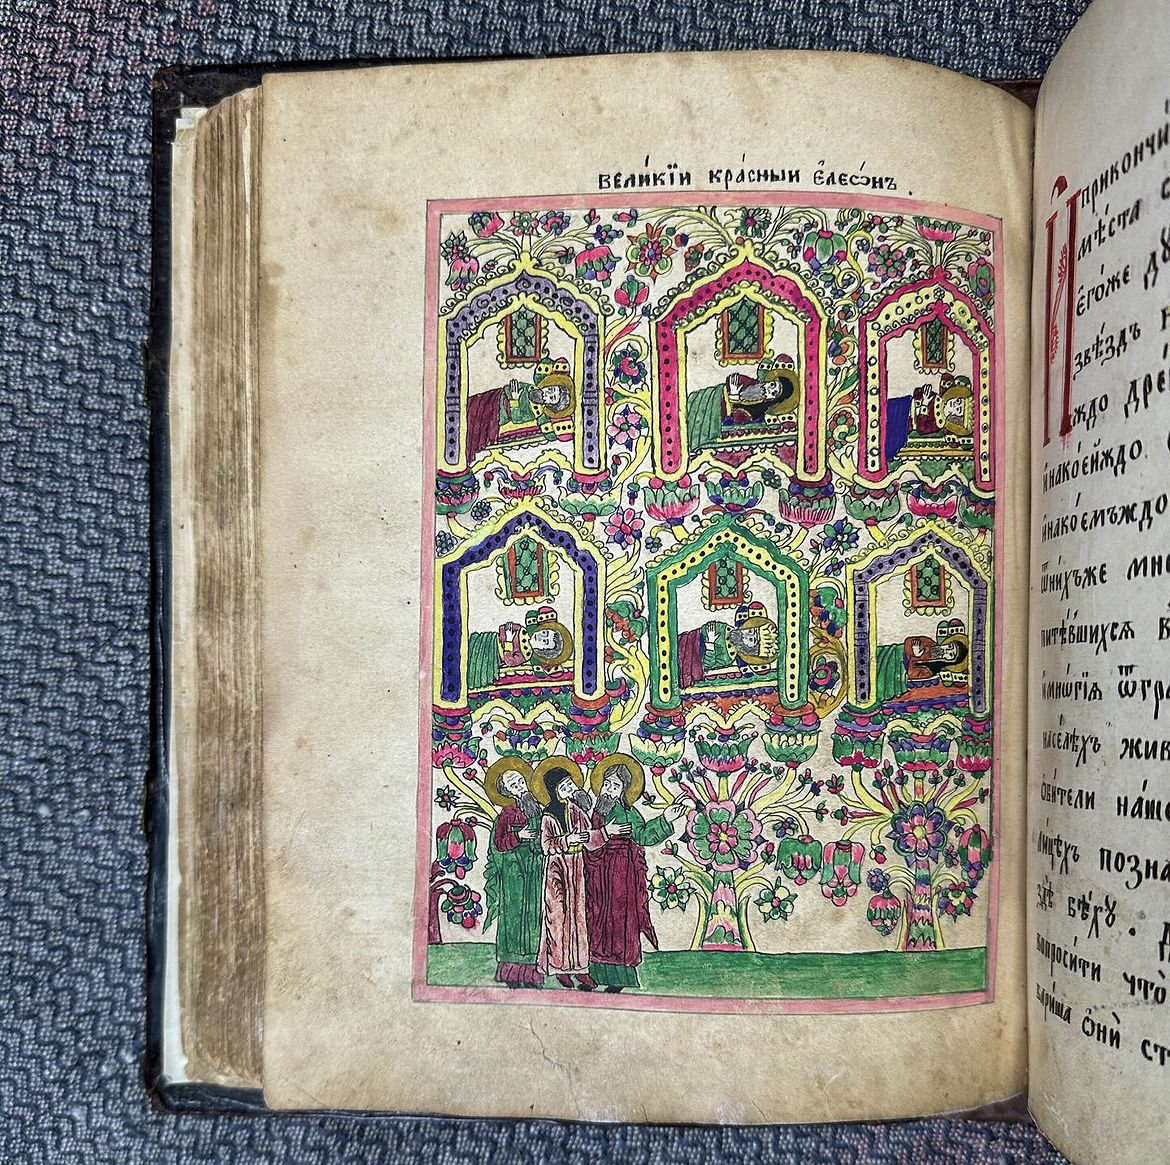 вели́кїи кра́сныи є҆лесѡ́нъ.
прикончи
мѣ́ста
є҆го́же
звѣ́здъ
ждо дре
и҆нако́єи́ждо
и҆нако́ємъждо
ѿни́хъже мно
питѣ́вшихсѧ
и҆мнѡ́гїѧ ѿгра
насе́лѣхъ жив
ѻ҆би́тели на́ше
ли́цѣхъ позна
здѣ̀ бѣ́хꙋ.
вопроси́ти что̀
вари́ша ѻ҆нѝ ст